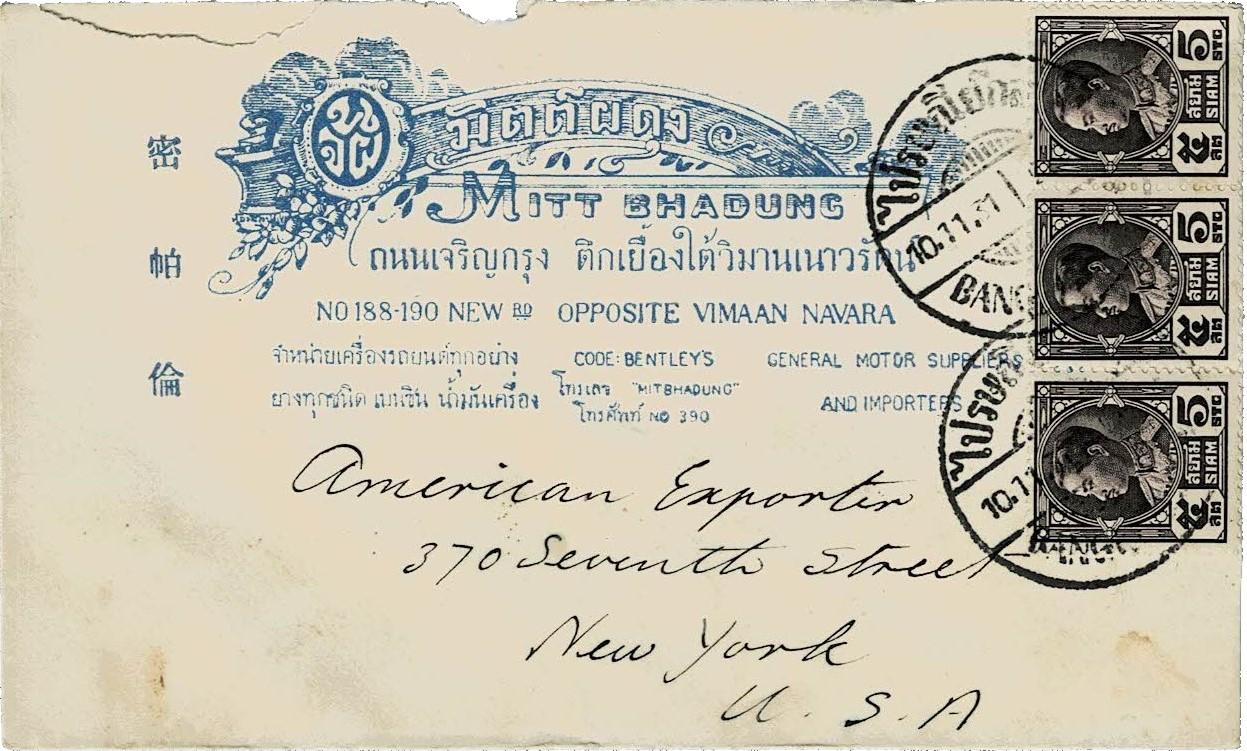 มิตต์ผดุง
MITT BHADUNG
密帕倫
ถนนเจริญกรุง ตึกเยื้องใต้วิมานเนาวรัตน์
NO 188-190 NEW RD OPPOSITE VIMAAN NAVARA
จำหน่ายเครื่องรถยนต์ทุกอย่าง
ยางทุกชนิด เบนซิน น้ำมันเครื่อง
CODE: BENTLEY'S
โทรเลข "MITBHADUNG"
โทรศัพท์ NO 390
GENERAL MOTOR SUPPLIERS
AND IMPORTERS
American Exporter
370 Seventh Street
New York
U. S. A
5 STG
สยาม
SIAM
๕ สต
5 STG
สยาม
SIAM
๕ สต
5 STG
สยาม
SIAM
๕ สต
10.11.31